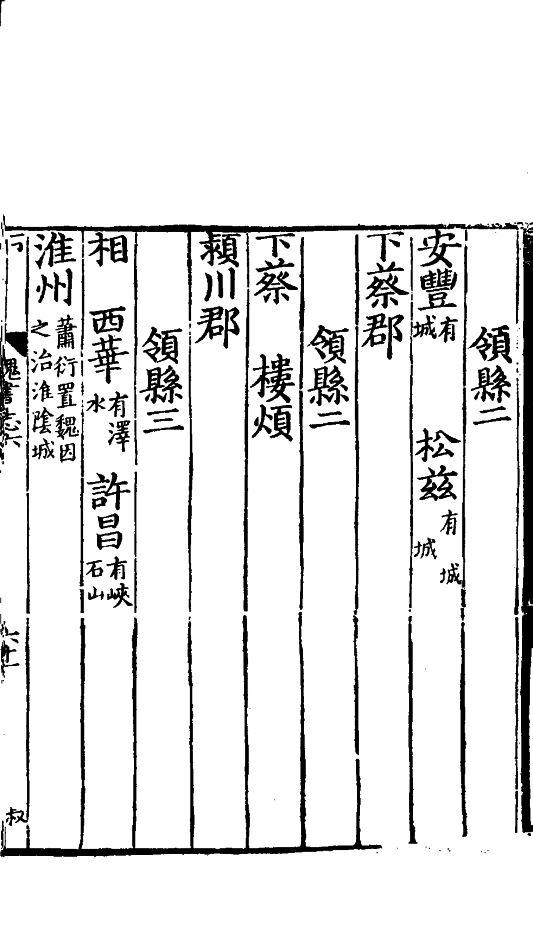 領縣二
安豐有城 松兹有城城
下蔡郡
領縣二
下蔡 樓煩
潁川郡
領縣三
相 西華有澤水 許昌有峽石山
淮州蕭衍置魏因之治淮陰城
魏書志六
六十一
叔